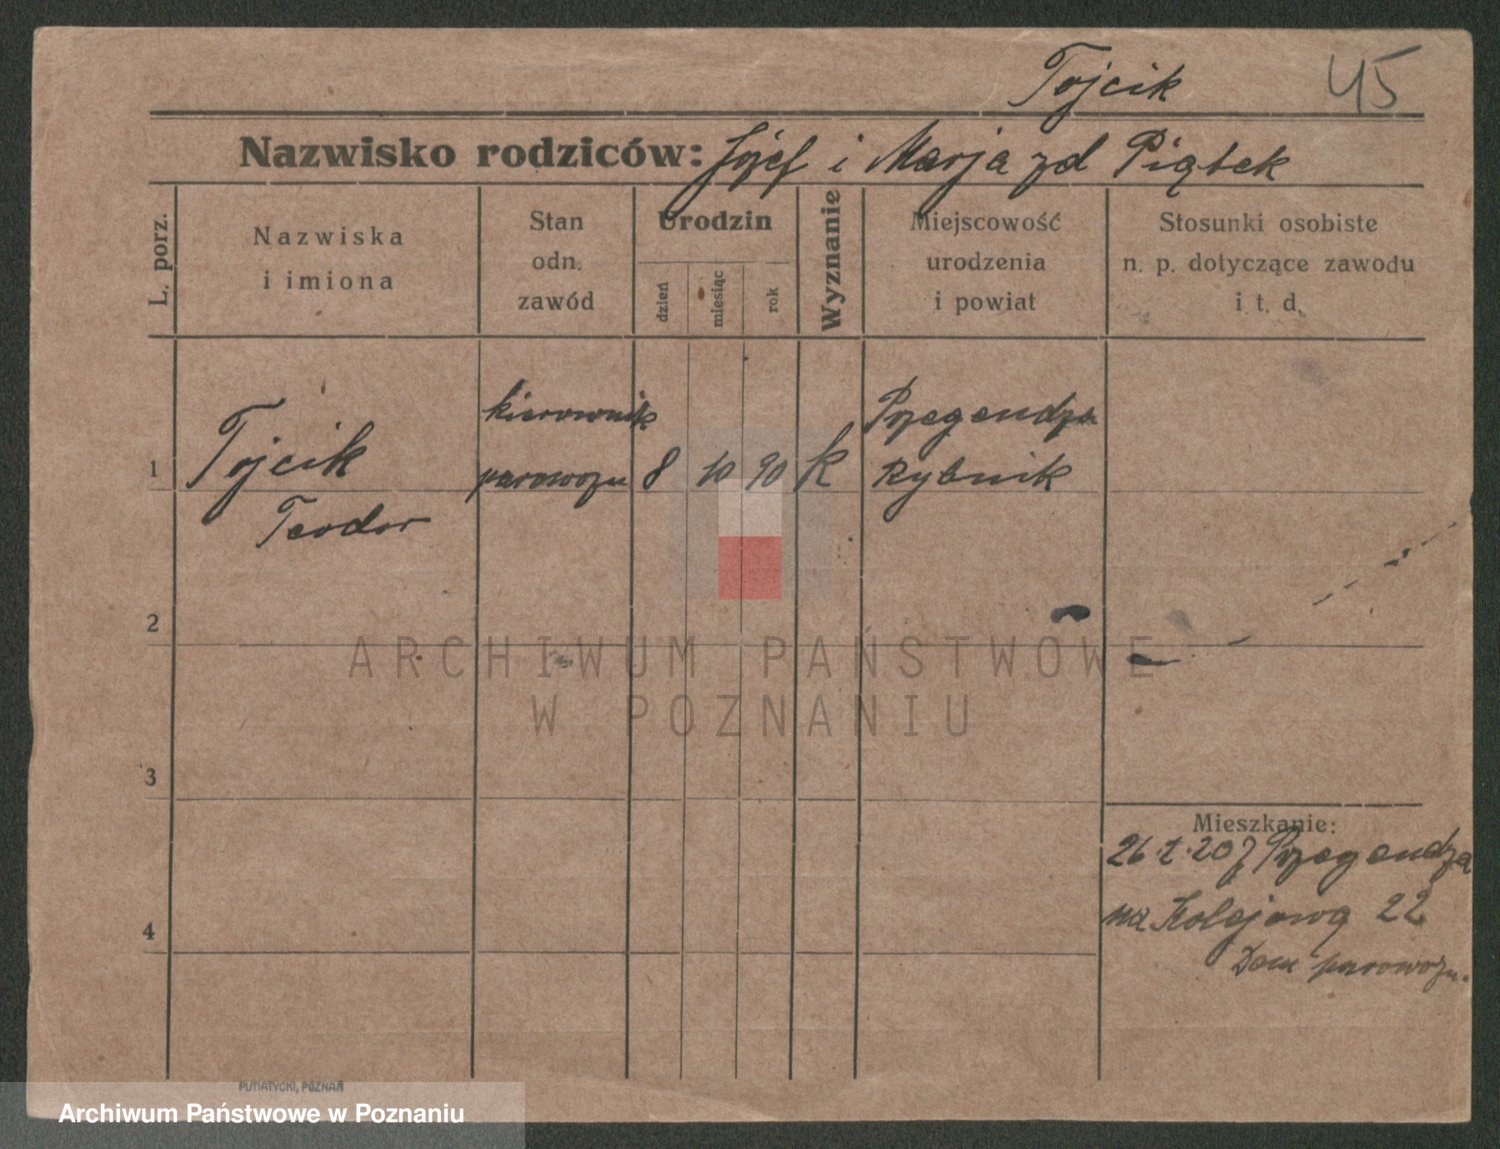 Tojcik 45
Nazwisko rodziców: Józef i Marja zd Piątek
L. porz.
Nazwiska
i imiona
Stan
odn.
zawód
Urodzin
dzień
miesiąc
rok
Wyznanie
Miejscowość
urodzenia
i powiat
Stosunki osobiste
n. p. dotyczące zawodu
i t. d.
1 Tojcik kierownik parowozu 8 10 90 k Rybnik
Teodor
2
ARCHIWUM PAŃSTWOWE
W POZNANIU
3
Mieszkanie:
26 20 z
4 na Kolejową 22
Dom parowozu.
PUTIATYCKI, POZNAŃ
Archiwum Państwowe w Poznaniu